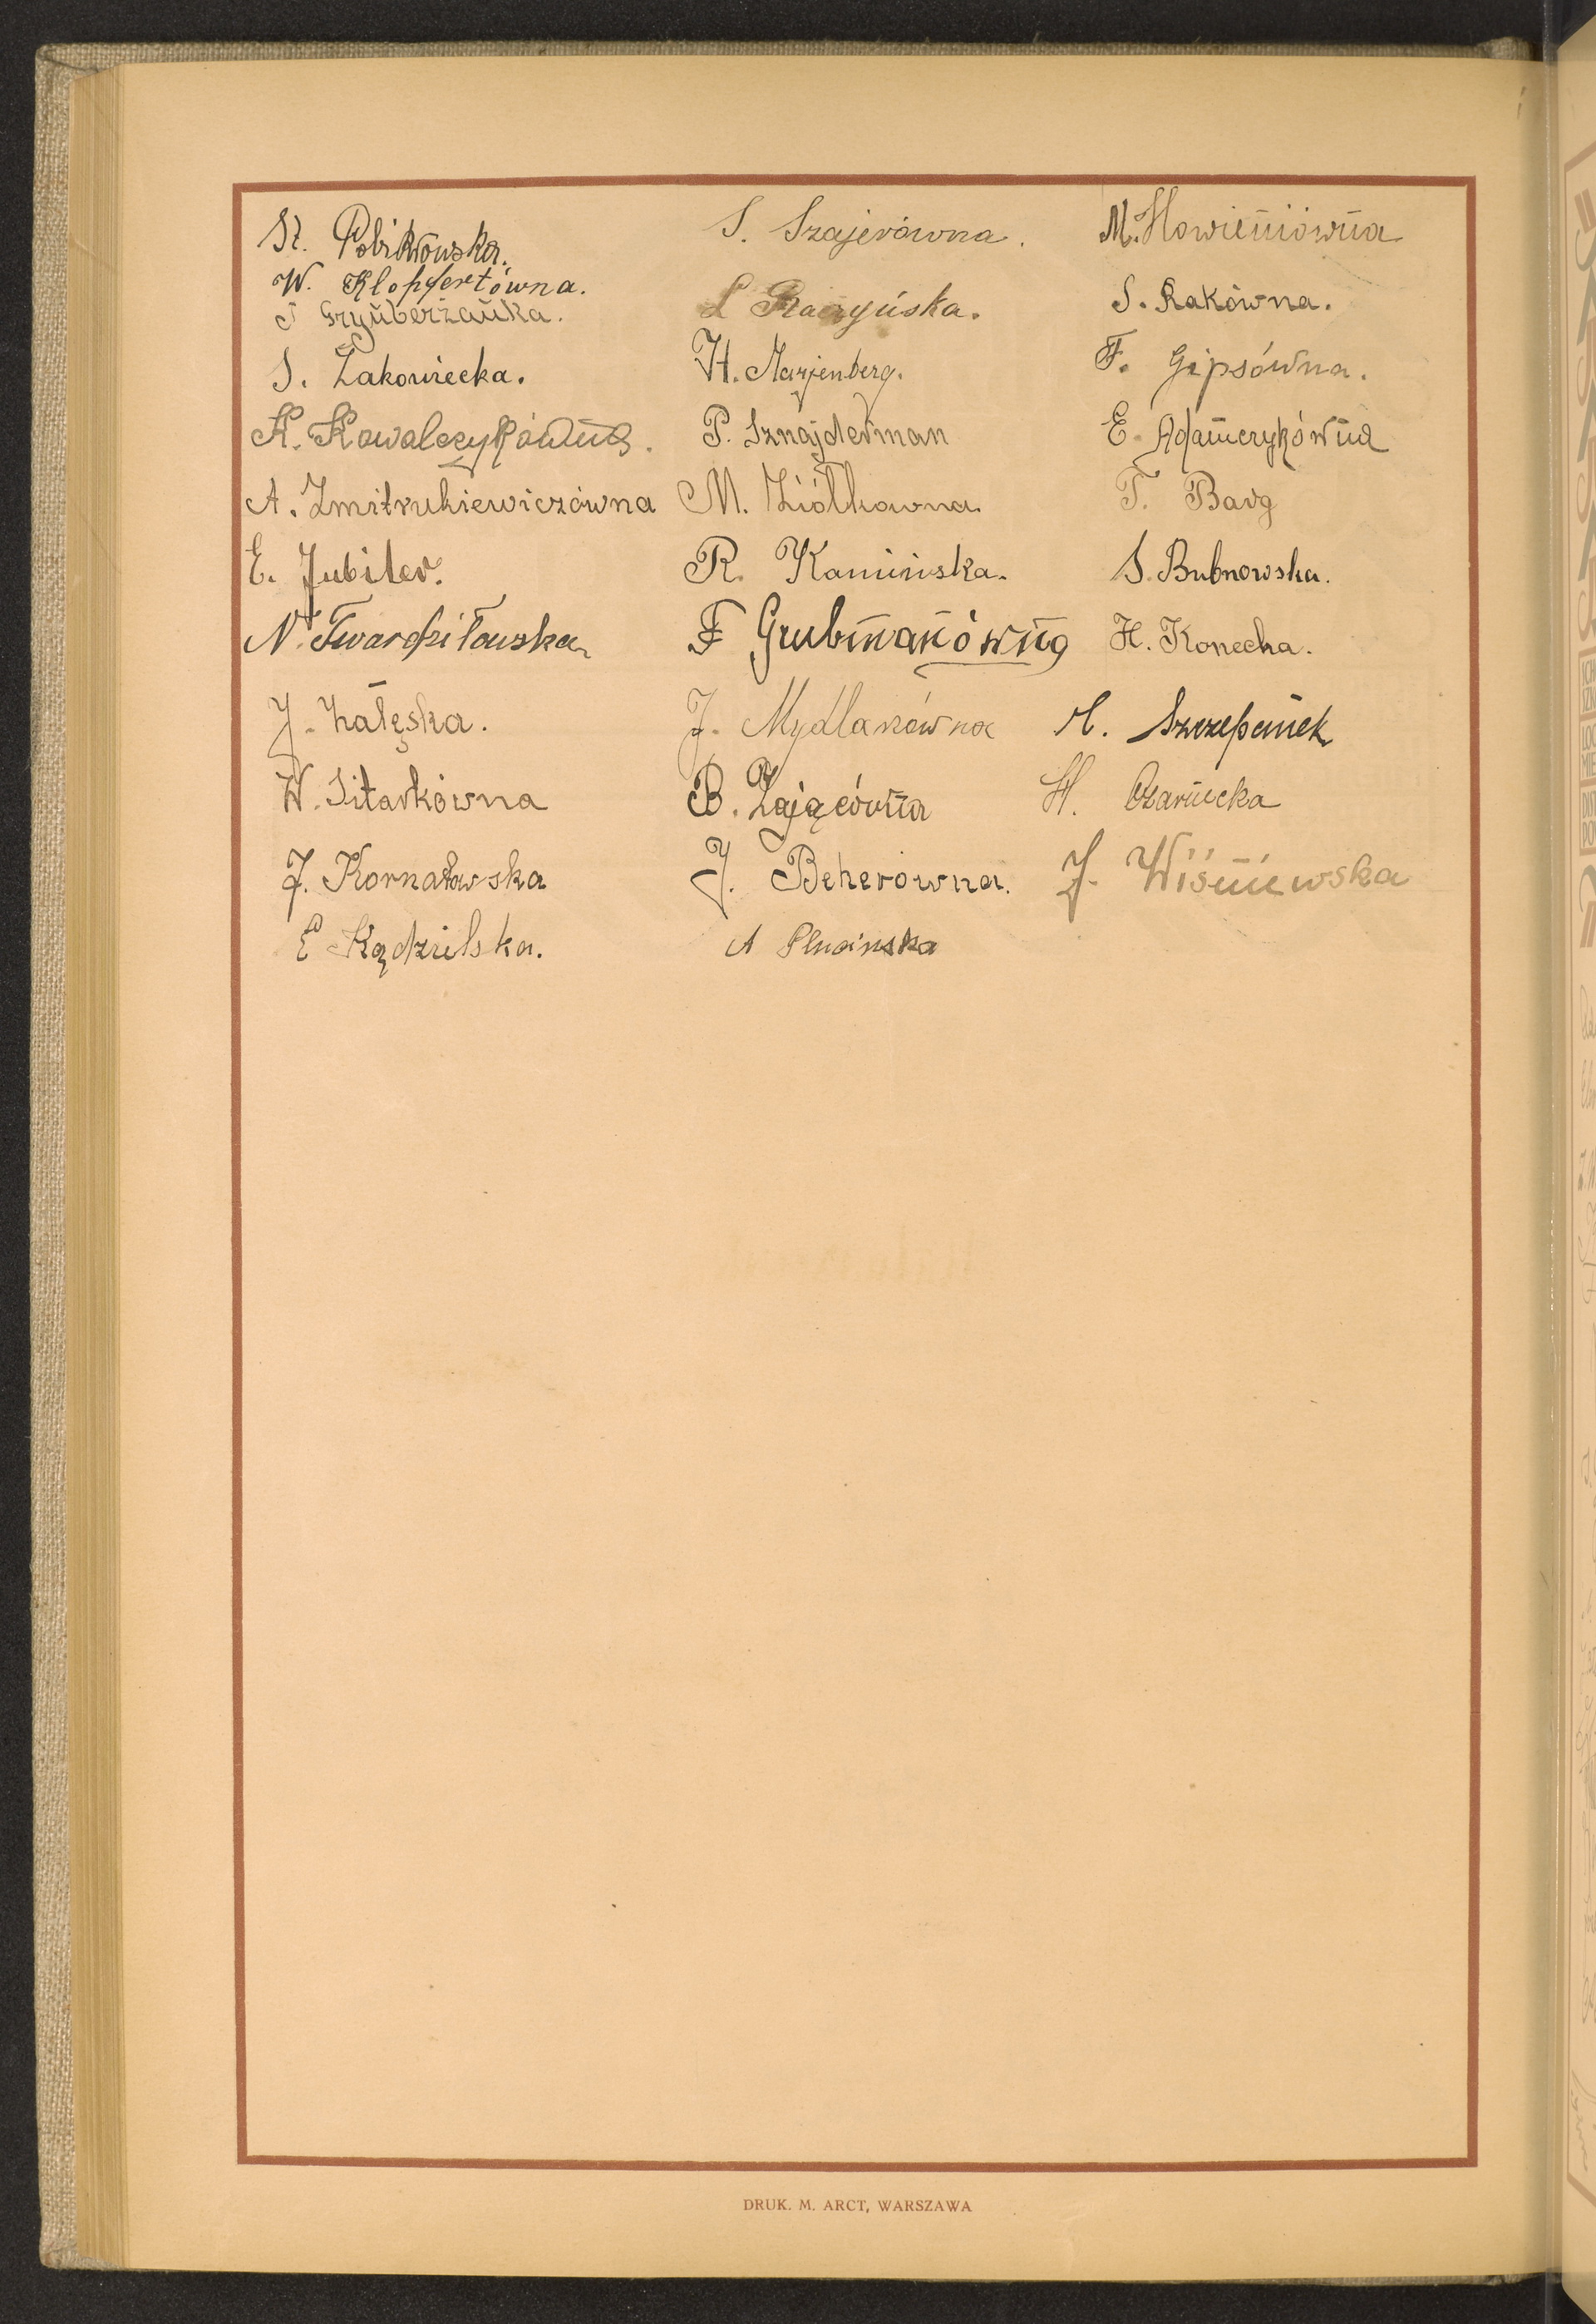 St. Pobikrowska.
W. Klopfertówna.
J Grynberżanka.
S. Żakowiecka.
K. Kowalczykówna.
A. Zmitrukiewiczówna
E. Jubiler.
N. Twardziłowska
J. Załęska.
W. Sitarkówna
J. Kornatowska
E Kądzielska.
S. Szajerówna.
L Raczyńska.
H. Marjenberg.
P. Sznajderman
M. Ziółkowna
R. Kaminska.
F Grubmanówna
J. Mydlarzówna
B. Zającówna
J. Bekerówna.
A Plucinska
M. Howieniówna
S. Rakówna.
F. Gipsówna.
E. Adamczykówna
T. Barg
S. Bubnowska.
H. Konecka.
M. Szczepanek
H. Czarnecka
J. Wiśniewska
DRUK. M. ARCT, WARSZAWA